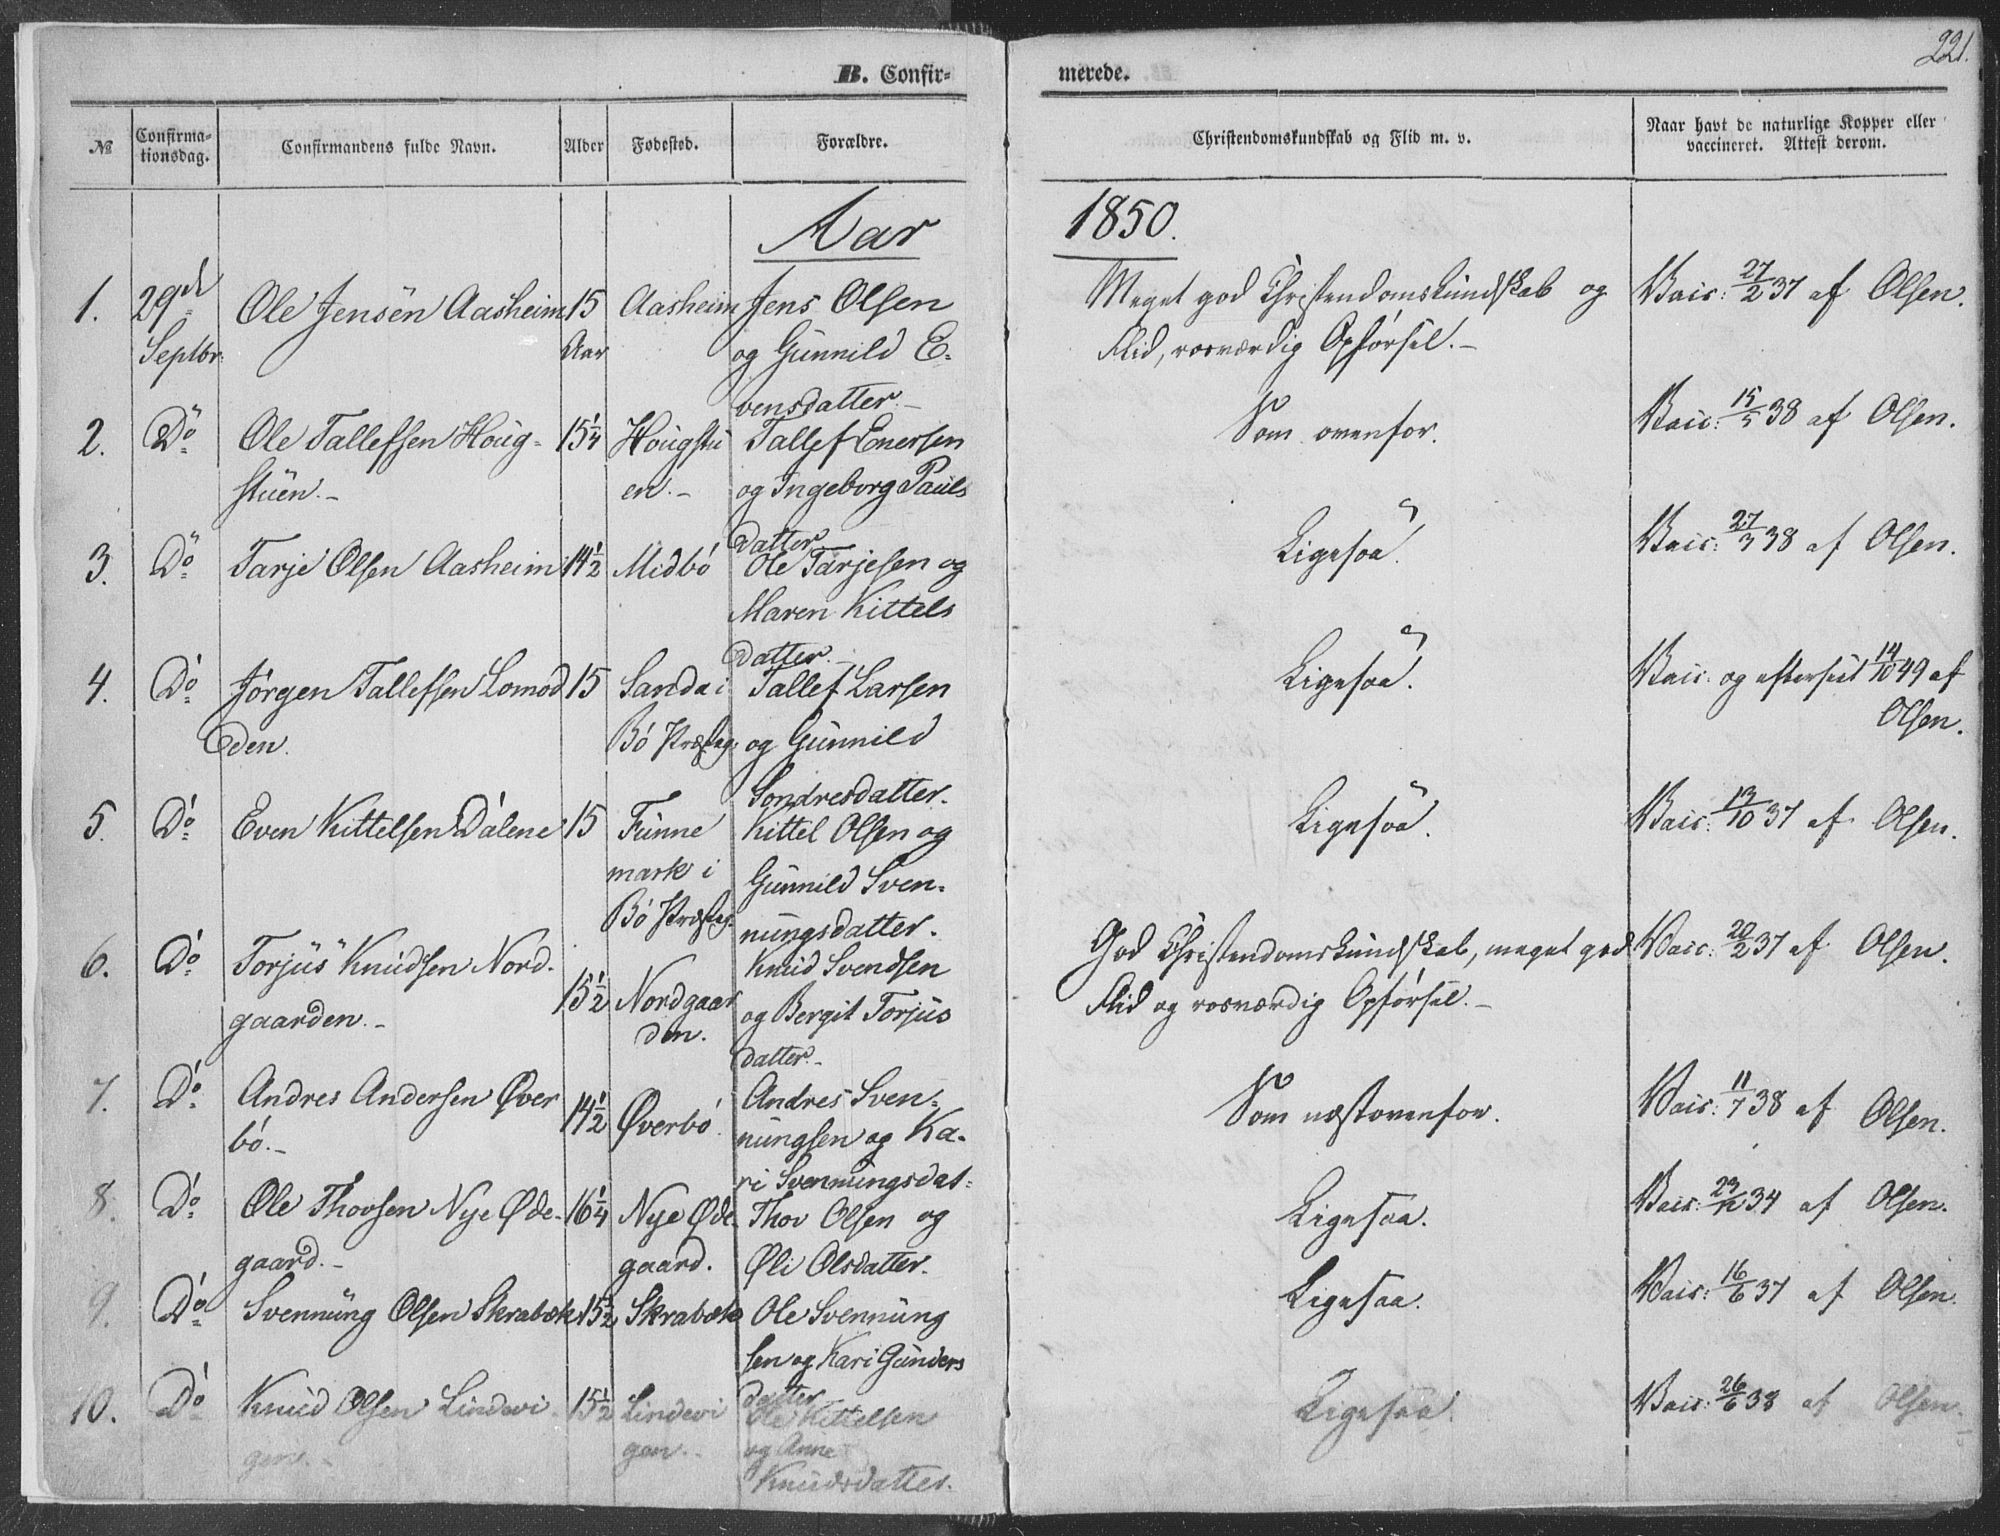 221.
B. Confir-
merede.
№
Confirma-
tionsdag.
Confirmandens fulde Navn.
Alder
Fødested.
Forældre.
Christendomskundskab og Flid m. v.
Naar havt de naturlige Kopper eller
vaccineret. Attest derom.
Aar
1850.
1. 29de Ole Jensen Aasheim 15 Aasheim Jens Olsen Meget god Christendomskundskab og Vacc: 27/2 37 af Olsen.
Septbr: Aar og Gunnild E- Flid, rosværdig Opførsel.-
vensdatter.-
2. Do Ole Tallefsen Houg- 15 1/4 Hougstu Tallef Enersen Som ovenfor. Vacc: 15/5 38 af Olsen.
stuen.- en.- og Ingeborg Pauls
datter
3. Do Tarje Olsen Aasheim 14 1/2 Midbó Ole Tarjesen og Ligesaa. Vacc: 27/3 38 af Olsen.
Maren Kittels
datter.-
4. Do Jórgen Tallefsen Lomod 15 Sanda i Tallef Larsen Ligesaa. Vacc: og efterseet 14/10 49 af
den. Bó Præsteg: og Gunnild Olsen.
Sondresdatter.
5. Do Even Kittelsen Dalene 15 Funne Kittel Olsen og Ligesaa. Vacc: 13/10 37 af Olsen.
mark i Gunnild Sven-
Bó Præsteg: nungsdatter.
6. Do Torjus Knudsen Nord- 15 1/2 Nordgaar Knud Svendsen God Christendomskundskab, meget god Vacc: 20/2 37 af Olsen.
gaarden.- den. og Bergit Torjus Flid og rosværdig Opførsel.-
datter.-
7. Do Andres Andersen Øver 14 1/2 Øverbó Andres Sven- Som næstovenfor. Vacc: 11/7 38 af Olsen.
bó.- nungsen og Ka-
ri Svennungsdat-
8. Do Ole Thovsen Nye Øde- 16 1/4 Nye Øde- Thov Olsen og Ligesaa. Vacc: 34 af Olsen.
gaard.- gaard. Øli Olsdatter.
9. Do Svennung Olsen Skrabek 15 1/2 Skrabek Ole Svennung Ligesaa. Vacc: 16/6 37 af Olsen.
sen og Kari Gunders
datter
10. Do Knud Olsen Lindevi 15 1/2 Lindevi Ole Kittelsen Ligesaa. Vacc: 26/6 38 af Olsen.
gen.- gen.- og Anne
Knudsdatter.